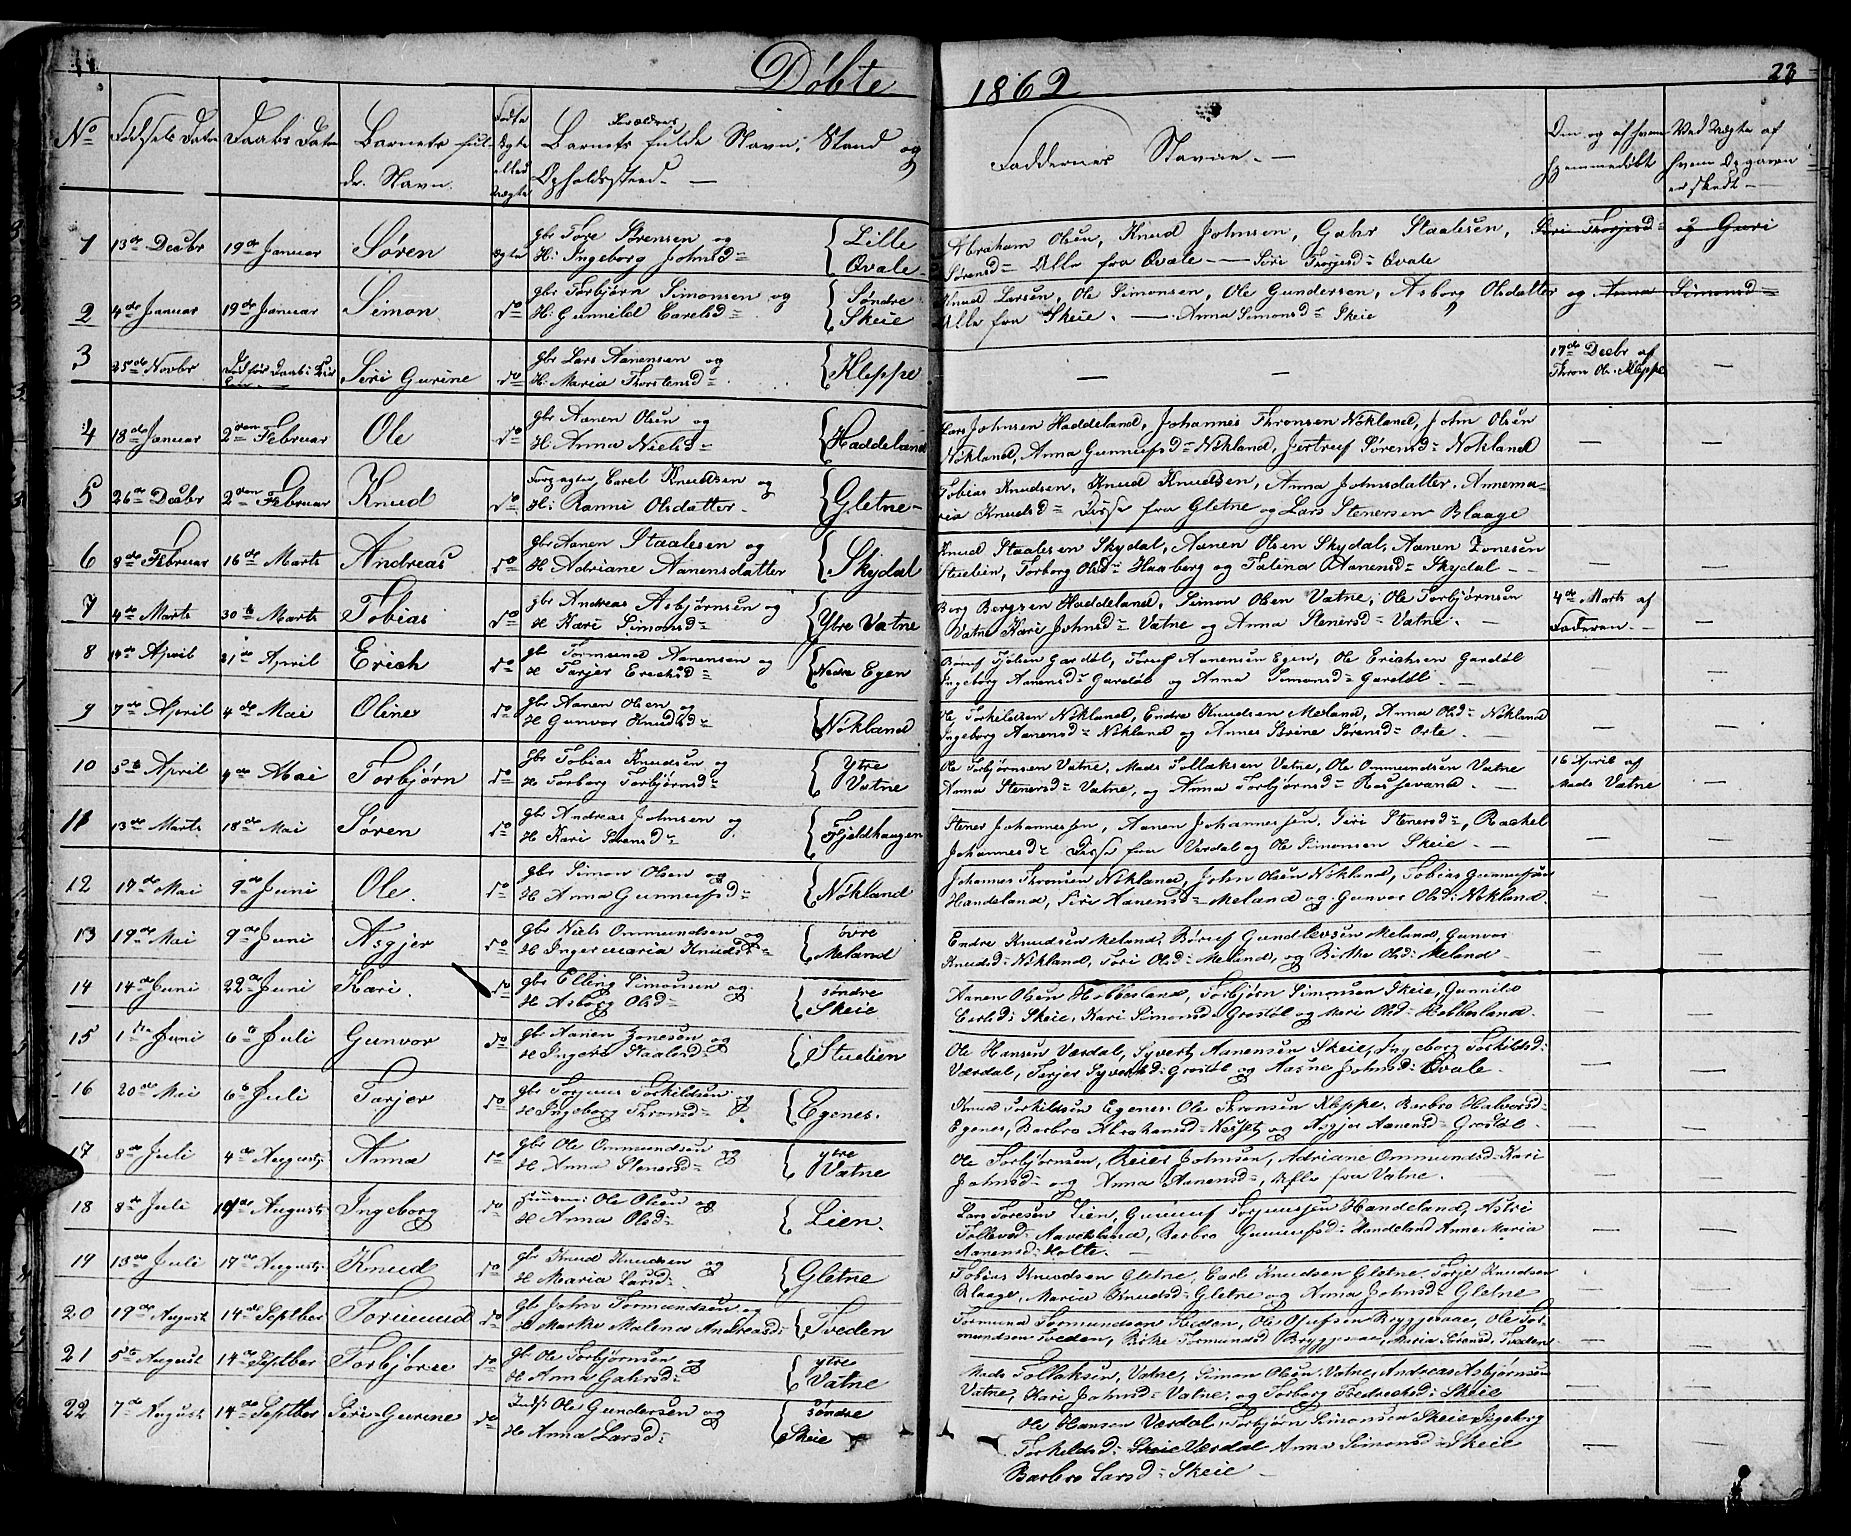 44 Døbte
1862 23
No Fødsels Daten Daabs Daten Barnets fulde Navn. Ægte eller Uægte Barnets Forældres fulde Navn, Stand og Opholdssted.
Faddernes Navne. Om og af hvem hjemmedøbt Ved Vægte af hvem Opgaven er skedt
1 13de Decbr 19de Januar Søren Ægte gbr Tore Sørensen og
H: Ingeborg Johnsd= Lille Qvale
Abraham Olsen, Knud Johnsen, Gahr Staalesen, Siri Thorjesd= og Guri
Sørensd= Alle fra Qvale — Siri Thorjesd= Qvale
2 4de Januar 19de Januar Simon do gbr Torbjørn Simonsen og
H: Gunnild Carelsd= Søndre Skeie
Knud Larsen, Ole Simonsen, Ole Gundersen, Asborg Olsdatter og Anna Simonsd=
Alle fra Skeie. — Anna Simonsd= Skeie
3 25de Novbr Siri Gurine do gbr Lars Aanensen og
H: Maria Thorstensd= Kleppe
— — 17de Decbr af
Thron Ols. Kleppe —
4 18de Januar 2den Februar Ole do gbr Aanen Olsen og
H: Anna Nielsd= Haddeland
Lars Johnsen Haddeland, Johannes Thronsen Nökland, John Olsen
Nökland, Anna Gunnufsd= Nökland, Jertruf Sørensd= Nokland — —
5 26de Decbr 2den Februar Knud do Carel Knudsen og
H: Ranni Olsdatter Gletne
Tobias Knudsen, Knud Knudsen, Anna Johnsdatter, Annema-
ria Knudsd= Disse fra Gletne og Lars Stenersen Blaage — —
6 8de Februar 16de Marts Andreas do gbr Aanen Staalesen og
H Adriane Aanensdatter Skydal
Knud Staalesen Skydal, Aanen Olsen Skydal, Aanen Zonesen
Stuelien, Torborg Olsd= Haaberg og Talina Aanensd= Skydal — — —
7 4de Marts 30te Marts Tobias do gbr Andreas Asbjørnsen og
H Kari Simonsd= Ytre Vatne
Berg Bergsen Haddeland, Simon Olsen Vatne, Ole Torbjørnsen
Vatne Kari Johnsd= Vatne og Anna Stenersd= Vatne. — 4de Marts af
Faderen. — —
8 April 21de April Erich do gb Tormund Aanensen og
H Tarjer Erichsd= Nedre Egen
Gardøl, Aanensen Egen, Ole Erichsen Gardøl
Ingeborg Aanensd= Gardøl og Anna Simonsd= Gardøl — — —
9 7de April 4de Mai Oline do gbr Aanen Olsen og
H Gunvor Knudsd= Nökland
Ole Torkildsen Nökland, Endre Knudsen Meland, Anna Olsd= Nökland
Ingeborg Aanensd= Nökland og Anne Sørensd= — — —
10 5te April 4de Mai Torbjørn do gbr Tobias Knudsen og
H Torborg Torbjørnsd= Ytre Vatne
Ole Torbjørnsen Vatne, Mads Tollaksen Vatne, Ole Ommundsen Vatne
Anna Stenersd= Vatne, og Anna Torbjørnsd= — 16 April af
Mads Vatne —
11 13de Marts 18de Mai Søren do gbr Andreas Johnsen og
H Kari Sørensd= Fjeldhaugen
Stener Johannessen, Aanen Johannessen, Siri Stenersd=, Rachel
Johannesd= Disse fra Værdal og Ole Simonsen Skeie. — — —
12 17de Mai 9de Juni Ole. do gbr Simon Olsen og
H Anna Gunnufsd= Nökland
Johannes Thronsen Nökland, John Olsen Nökland, Tobias Gunnufsen
Handeland, Siri Aanensd= Meland og Gunvor Olsd: Nökland — —
13 19de Mai 9de Juni Asgjer do gbr Niels Ommundsen og
H Ingermaria Knudsd= övre Meland
Endre Knudsen Meland, Børuf Gundlevsen Meland, Gunvor
Knudsd= Nökland, Tori Olsd= Meland, og Birthe Olsd: Meland — —
14 14de Juni 22de Juni Kari. do gbr Elling Simonsen og
H Asborg Olsd= söndre Skeie
Aanen Olsen Hobbesland, Torbjørn Simonsen Skeie, Gunnild
Carlsd: Skeie, Kari Simonsd= Grostøl og Kari Olsd= Hobbesland. — —
15 1ste Juni 6te Juli Gunvor do gbr Aanen Zonesen og
H Ingeborg Staalesd= Stuelien
Ole Hansen Værdal, Syvert Aanensen Skeie, Ingeborg Torkildsd:
Værdal, Tarjer Syvertsd= Grostøl og Aasne Johnsd: Qvale. — —
16 20de Mai 6te Juli Tarjer do gbr Torjuus Torkildsen og
H Ingeborg Thronsd= Egenes.
Knud Torkildsen Egenes. Ole Thronsen Kleppe. Barbro Halvorsd=
Egenes, Barbro Abrahamsd= Nesset og Asgjer Aanensd= Grostøl. — —
17 8de Juli 4de Augusts Anna do gbr Ole Ommundsen og
H Anna Stenersd= ytre Vatne
Ole Torbjørnsen, Reier Johnsen, Adriane Ommundsd= Kari
Johnsd= og Anna Aanensd=, Alle fra Vatne. — —
18 8de Juli Augusts Ingeborg do Ole Olsen og
H Anna Olsd= Lien.
Lars Toresen Lien, Gunnuf Torjuussen Handeland, Astri
Tollevsd= Aavekland, Barbro Gunnufsd= Handeland Anne Maria
Aanensd= Holte. — — —
19 13de Juli 17de Augusts Knud do gbr Knud Knudsen og
H Maria Larsd= Gletne
Tobias Knudsen Gletne, Carl Knudsen Gletne, Torje Knudsen
Blaage, Maria Knudsd= Gletne og Anna Johnsd= Gletne — —
20 19de August 14de Septber Tormund do gbr John Tormundsen og
H Marthe Malene Andreasd= Tveden
Tormund Tormundsen Tveden, Ole Olufsen Bryggesaae, Ole Tor-
mundsen Tveden, Birthe Tormundsd= Bryggesaae, Maria Sørensd: Tveden — —
21 5te August 14de Septber Torbjørn do gbr Ole Torbjørnsen og
H Anna Gahrsd= ytre Vatne
Mads Tollaksen, Vatne, Simon Olsen, Vatne, Andreas Asbjørnsen
Vatne, Kari Johnsd= Vatne, og Torborg Fredriksd= Skeie — —
22 7de August 14de Septber Siri Gurine do Inds: Ole Gundersen og
H Anna Larsd= söndre Skeie
Ole Hansen Værdal, Torbjørn Simonsen Skeie, Ingeborg
Torkildsd: Skeie Værdal Anna Simonsd= Skeie
Barbro Larsd= Skeie — — —